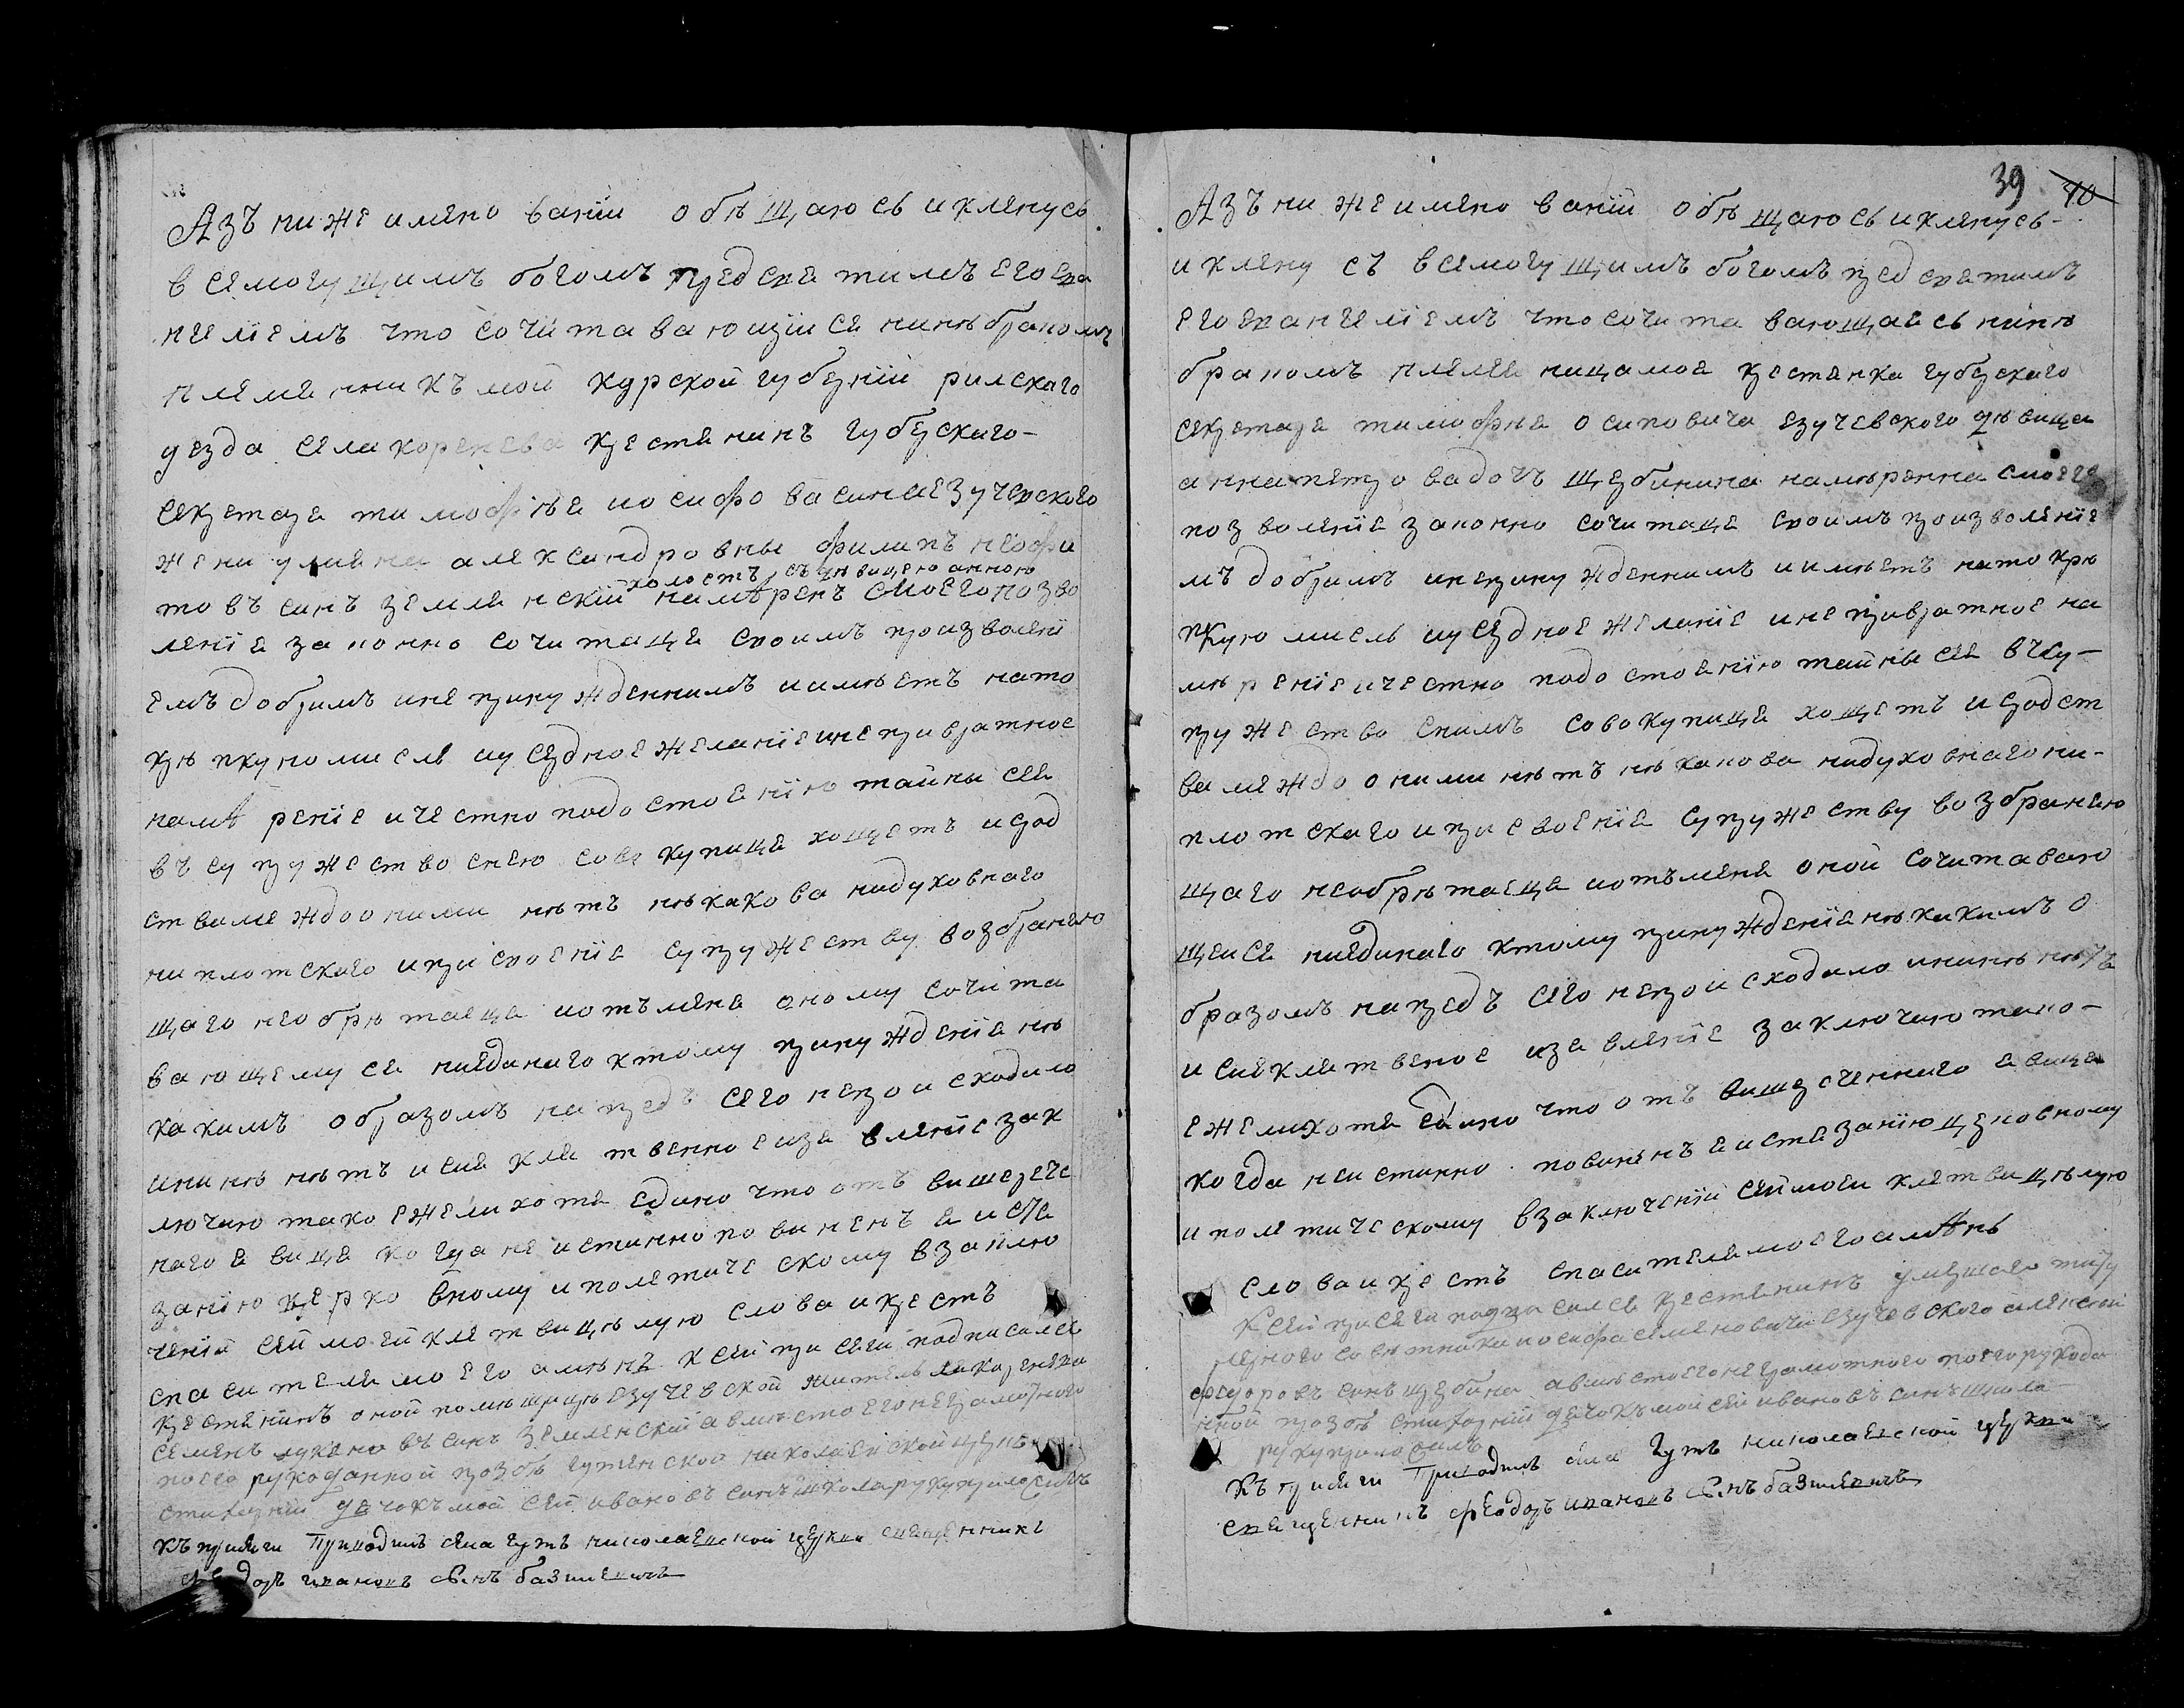 Азъ ниже имяно ваніи обѣщаюсь и клянусь
всемогущимъ богомъ предсвятимъ его ева
нгеліемъ что сочитавающійся нинѣ бракомъ
племянникъ мой курской губерніи рилского
уезда села коренева крестянинъ губерского
секретаря тимофѣя иосифова сина езучевского
жени александровны филипъ неофи
холостъ съ дѣвицею анною
товъ синъ землянскій намѣренъ смоего позво
ленія законно сочитаця своимъ произволені
емъ добримъ инепринужденнимъ иимѣетъ нато
крѣпкую мисль иусердное желаніе инепривратное
намѣреніе ичестно подостоянію тайни сея
въ супружество снею совокупиця хощетъ исрод
ства междо оними нѣтъ нѣкакова нидуховнаго
ниплотскаго иприсвоенія супружеству возбраняю
щаго необрѣтаеця иотъмене оному сочита
вающемуся ниединаго ктому принужденія нѣ
какимъ образомъ напредъ сего непроисходило
ининѣ нѣтъ исие клятвенное изявленіе зак
лючаю тако ежели хотя едино что отъ вишерече
наго явиця когда неистинно повиненъ я истя
занію церковному иполетическому взаклю
ченіи сей моей клятви целую слова икрестъ
спасителя моего аминь ксей присяги подписался
крестянинъ оной помѣщици езучевской житель
семенъ синъ землянский авмѣсто его неграмотного
поего рукоданной прозбѣ гутянской николаевской церкви
стихарній дячокъ мойсей ивановъ синъ школа руку приложилъ
къ присяги приводилъ села гутъ николаевской церкви священникъ
феодоръ ивановъ синъ базилевичъ
39 40
Азъ ниже имяно ваніи обѣщаюсь и клянусь
и клянусъ всемогущимъ богомъ предсвятимъ
его евангеліемъ что сочитавающаясь нинѣ
бракомъ племяница моя крестянка губерского
секретаря тимофѣя осиповича езучевского дѣвица
анна петрова дочъ щербинина намѣренна смоего
позволенія законно сочитаця своимъ произволеніе
мъ добримъ инепринужденнимъ иимѣетъ нато крѣ
пкую мисль иусердное желаніе инепривратное на
мѣреніе ичестно подостоянію тайны сея въсу
пружество снимъ совокупиця хощетъ исродст
ва междо оними нѣтъ нѣкакова нидуховнаго ни
плотскаго иприсвоенія супружеству возбраняю
щаго необрѣтаеця иотъмене оной сочитаваю
щейся ниединаго ктому принужденія нѣкакимъ о
бразомъ напредъ сего непроисходило ининѣ нѣтъ
и сие клятвеное изявленіе заключаю тако
ежели хотя едино что отъ вишереченнаго явиця
когда неистинно повиненъ я истязанію церковному
и полетическому взаключеніи сей моей клятви целую
слова икрестъ спасителя моего амѣнь
Ксей присяги подписался крестянинъ умершего титу
лярного советника иосифа семеновича езучевского алексей
федоровъ синъ щербина авмѣсто его неграмотного поего рукода
нной прозбѣ стихарній дячокъ мойсей ивановъ синъ школа
руку приложилъ
Къ присяги приводилъ села Гутъ николаевской церкви
священникъ феодоръ ивановъ синъ базилевичъ